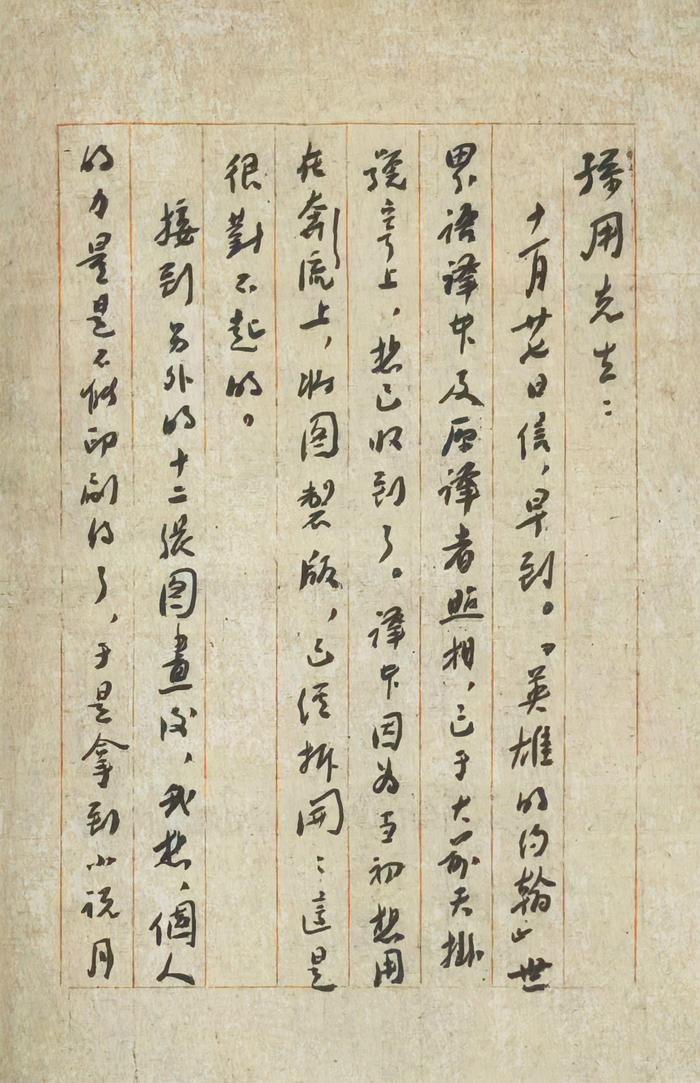 孫用先生：
十一月廿七日信，早到。《英雄的約翰》世
界語譯本及原譯者照相，已于大前天掛
號寄上，想已收到了。譯本因为當初想用
在奔流上，將图製版，已經拆開；這是
很對不起的。
接到另外的十二張图畫後，我想，個人
的力量是不能印刷的了，于是拿到小说月